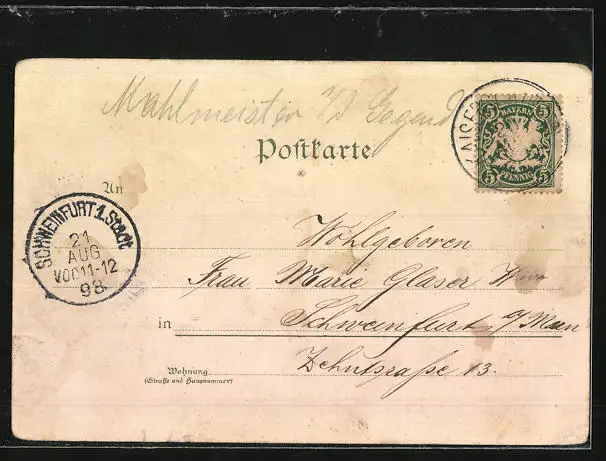 Mahlmeister Gegend
Postkarte
BAYERN
5 5
5 5
PFENNIG
An
SCHWEINFURT 1. Stadt
21
AUG
VOR 11-12
98
Wohlgeboren
Frau Marie Glaser
in Schweinfurt a/Main
Wohnung
(Straße und Hausnummer)
Zehntstraße 13.